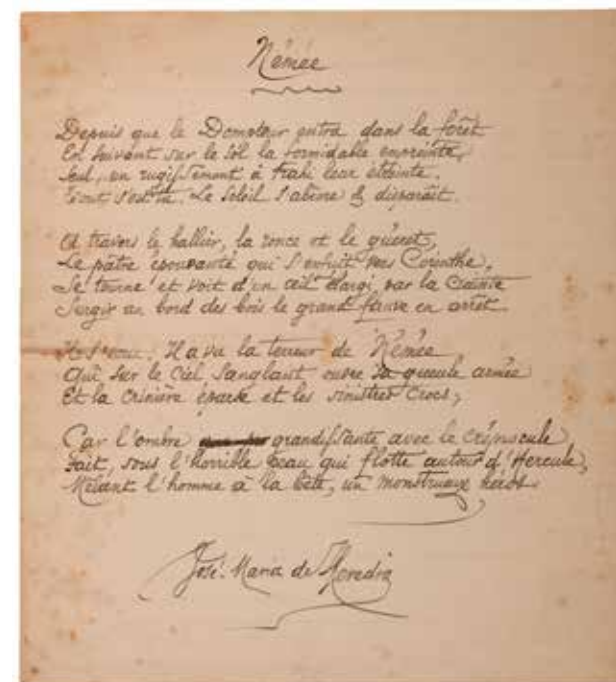 Némée
Depuis que le Dompteur entra dans la forêt
En suivant sur le sol la formidable empreinte,
Seul, un rugissement a trahi leur étreinte.
Tout s'est tu. Le Soleil s'abîme & disparaît.
A travers le hallier, la ronce et le guéret,
Le pâtre épouvanté qui s'enfuit vers Corinthe,
Se tourne et voit d'un œil élargi par la crainte
Surgir au bord des bois le grand fauve en arrêt.
Il a vu la terreur de Némée
Qui sur le Ciel sanglant ouvre la gueule armée
Et la crinière éparse et les sinistres crocs;
Car l'ombre grandissante avec le crépuscule
Fait, sous l'horrible peau qui flotte autour d'Hercule,
Mêlant l'homme à la bête, un monstrueux héros.
José-Maria de Heredia